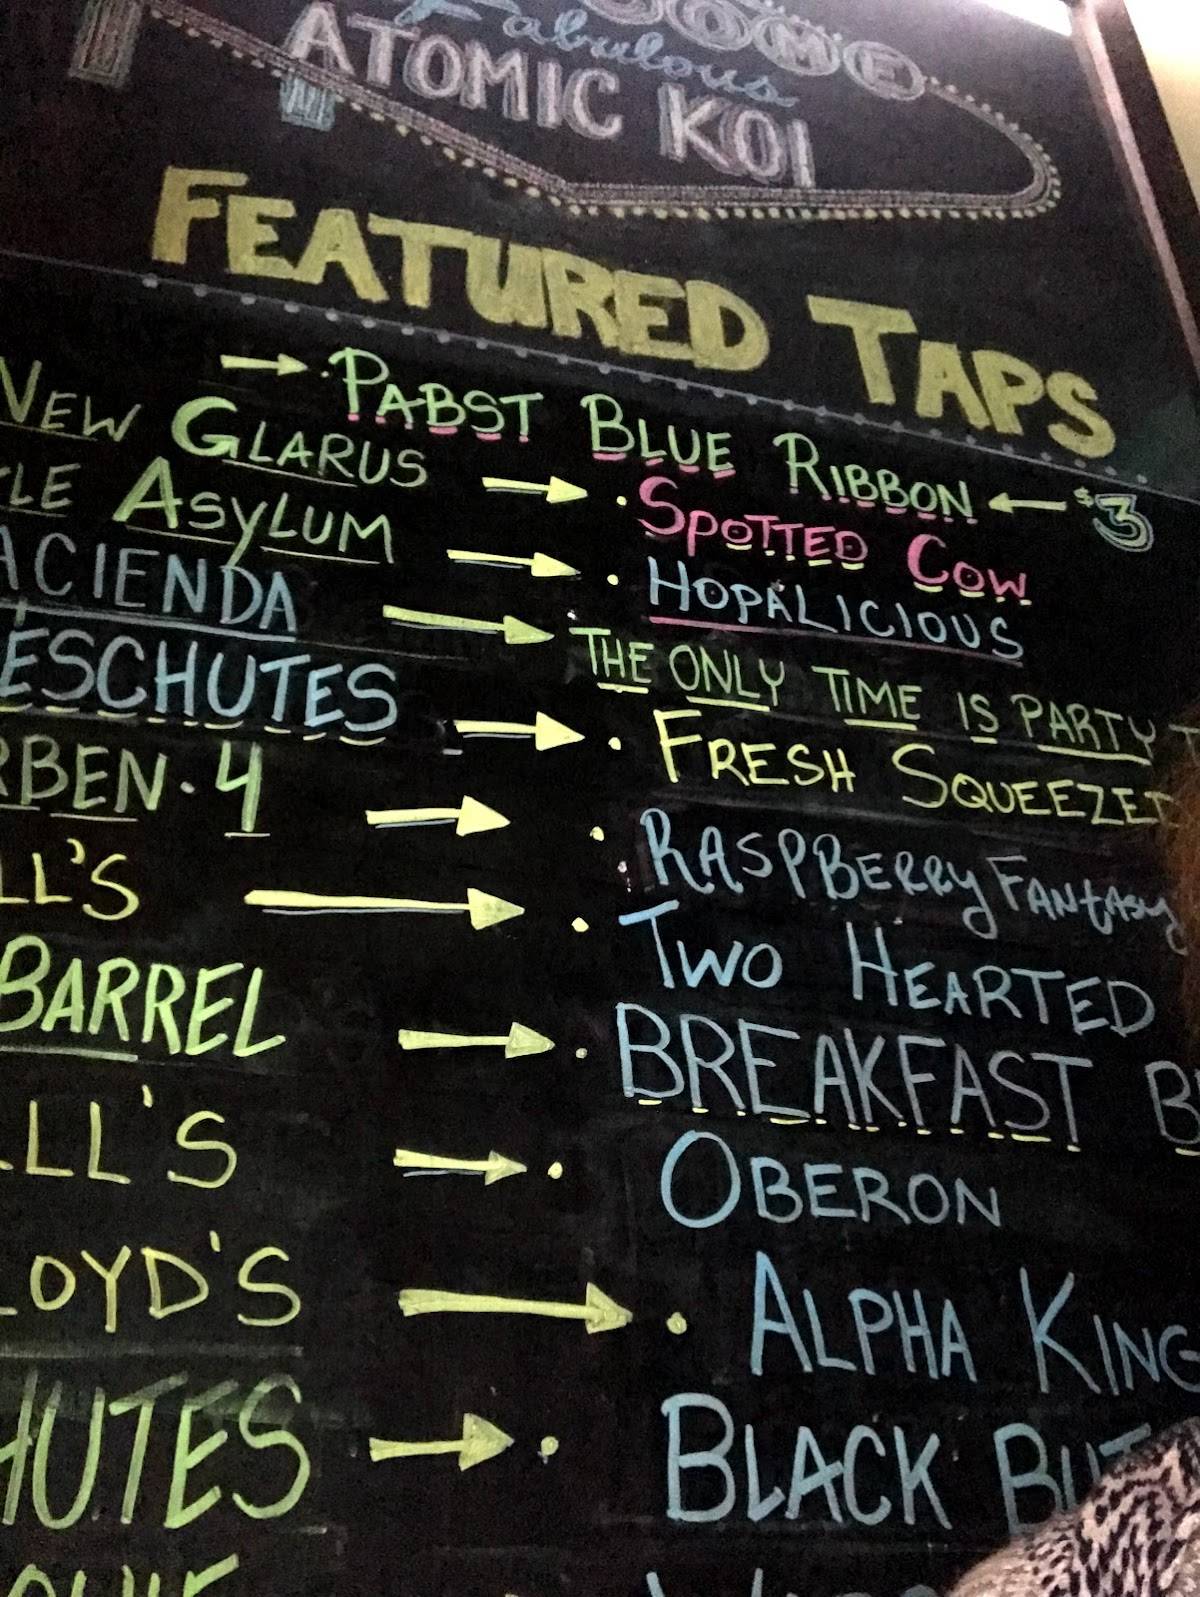 Fabulous
ATOMIC KOI
FEATURED TAPS
→ · PABST BLUE RIBBON ← $3
NEW GLARUS → · SPOTTED COW
LE ASYLUM → · HOPALICIOUS
ACIENDA → THE ONLY TIME IS PARTY T
ESCHUTES → · FRESH SQUEEZED
RBEN · 4 → · RASPBERRY FANTASY
LL'S → · TWO HEARTED
BARREL → · BREAKFAST B
LL'S → · OBERON
LOYD'S → · ALPHA KING
HUTES → · BLACK BUT